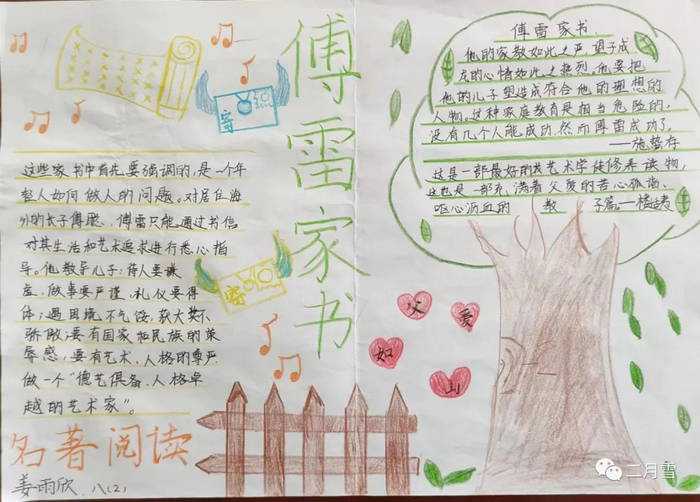 傅雷家书
寄
这些家书中首先要强调的,是一个年
轻人如何做人的问题。对居住海
外的长子傅聪,傅雷只能通过书信
对其生活和艺术要求进行悉心指
导。他教导儿子:待人要谦
虚,做事要严谨,礼仪要得
体;遇困境不气馁,获大奖不
骄傲;要有国家和民族的荣
辱感,要有艺术、人格的尊严
做一个“德艺俱备,人格卓
越的艺术家”。
寄
名著阅读
姜雨欣 八(2)
傅雷家书
他的家教如此之严,望子成
龙的心情如此之热烈。他要把
他的儿子塑造成符合他的理想的
人物。这种家庭教育是相当危险的,
没有几个人能成功,然而傅雷成功了。
——施蛰存
这是一部最好的艺术学徒修养读物,
这也是一部充满着父爱的苦心孤诣、
呕心沥血的 教 子篇。—楼适夷
父
爱
如
山
二月雪